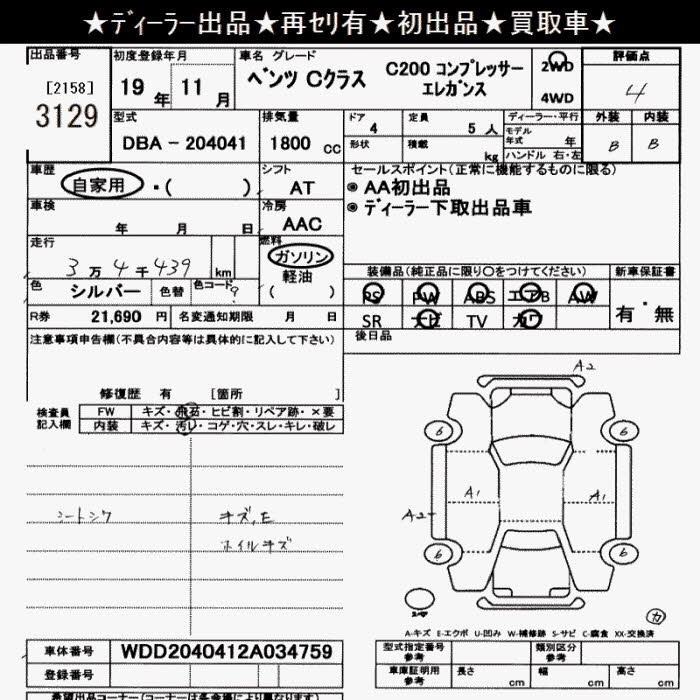 ★ディーラー出品★再セリ有★初出品★買取車★
出品番号 初度登録年月 車名 グレード 評価点
[2158] 19年 11月 ベンツ Cクラス C200 コンプレッサー エレガンス 2WD 4
3129 4WD
型式 排気量 ドア 定員 ディーラー・平行 外装 内装
DBA - 204041 1800 cc 4 5 人 モデル年式 年 B B
形状 積載 kg ハンドル 右・左
車歴 シフト セールスポイント(正常に機能するものに限る)
自家用 ・( ) AT ◉AA初出品
車検 冷房 ◉ディーラー下取出品車
年 月 日 AAC
走行 燃料
3万4千439 km ガソリン 装備品(純正品に限り○をつけてください) 新車保証書
軽油
色 シルバー 色替 色コード ? ( ) PS PW ABS エアB AW 有・無
R券 21,690 円 名変通知期限 月 日 SR ナビ TV カワ
注意事項申告欄(不具合内容等は具体的に記入して下さい) 後日品
修復歴 有 [箇所 ]
A2
検査員 FW キズ・飛石・ヒビ割・リペア跡・×要
記入欄 内装 キズ・汚レ・コゲ・穴・スレ・キレ・破レ
6 6
A1 A1
シートシワ キズ,E A2
ホイルキズ
6 6
カ
A-キズ E-エクボ U-凹み W-補修跡 S-サビ C-腐食 XX-交換済
車体番号 WDD2040412A034759 型式指定番号 参考 類別区分 参考
登録番号 車庫証明用 参考 長さ cm 幅 cm 高さ cm
希望出品コーナー(コーナーは各会場により異なります)